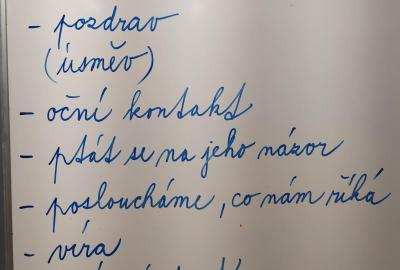 - pozdrav
(úsměv)
- oční kontakt
- ptát se na jeho názor
- posloucháme, co nám říká
- víra